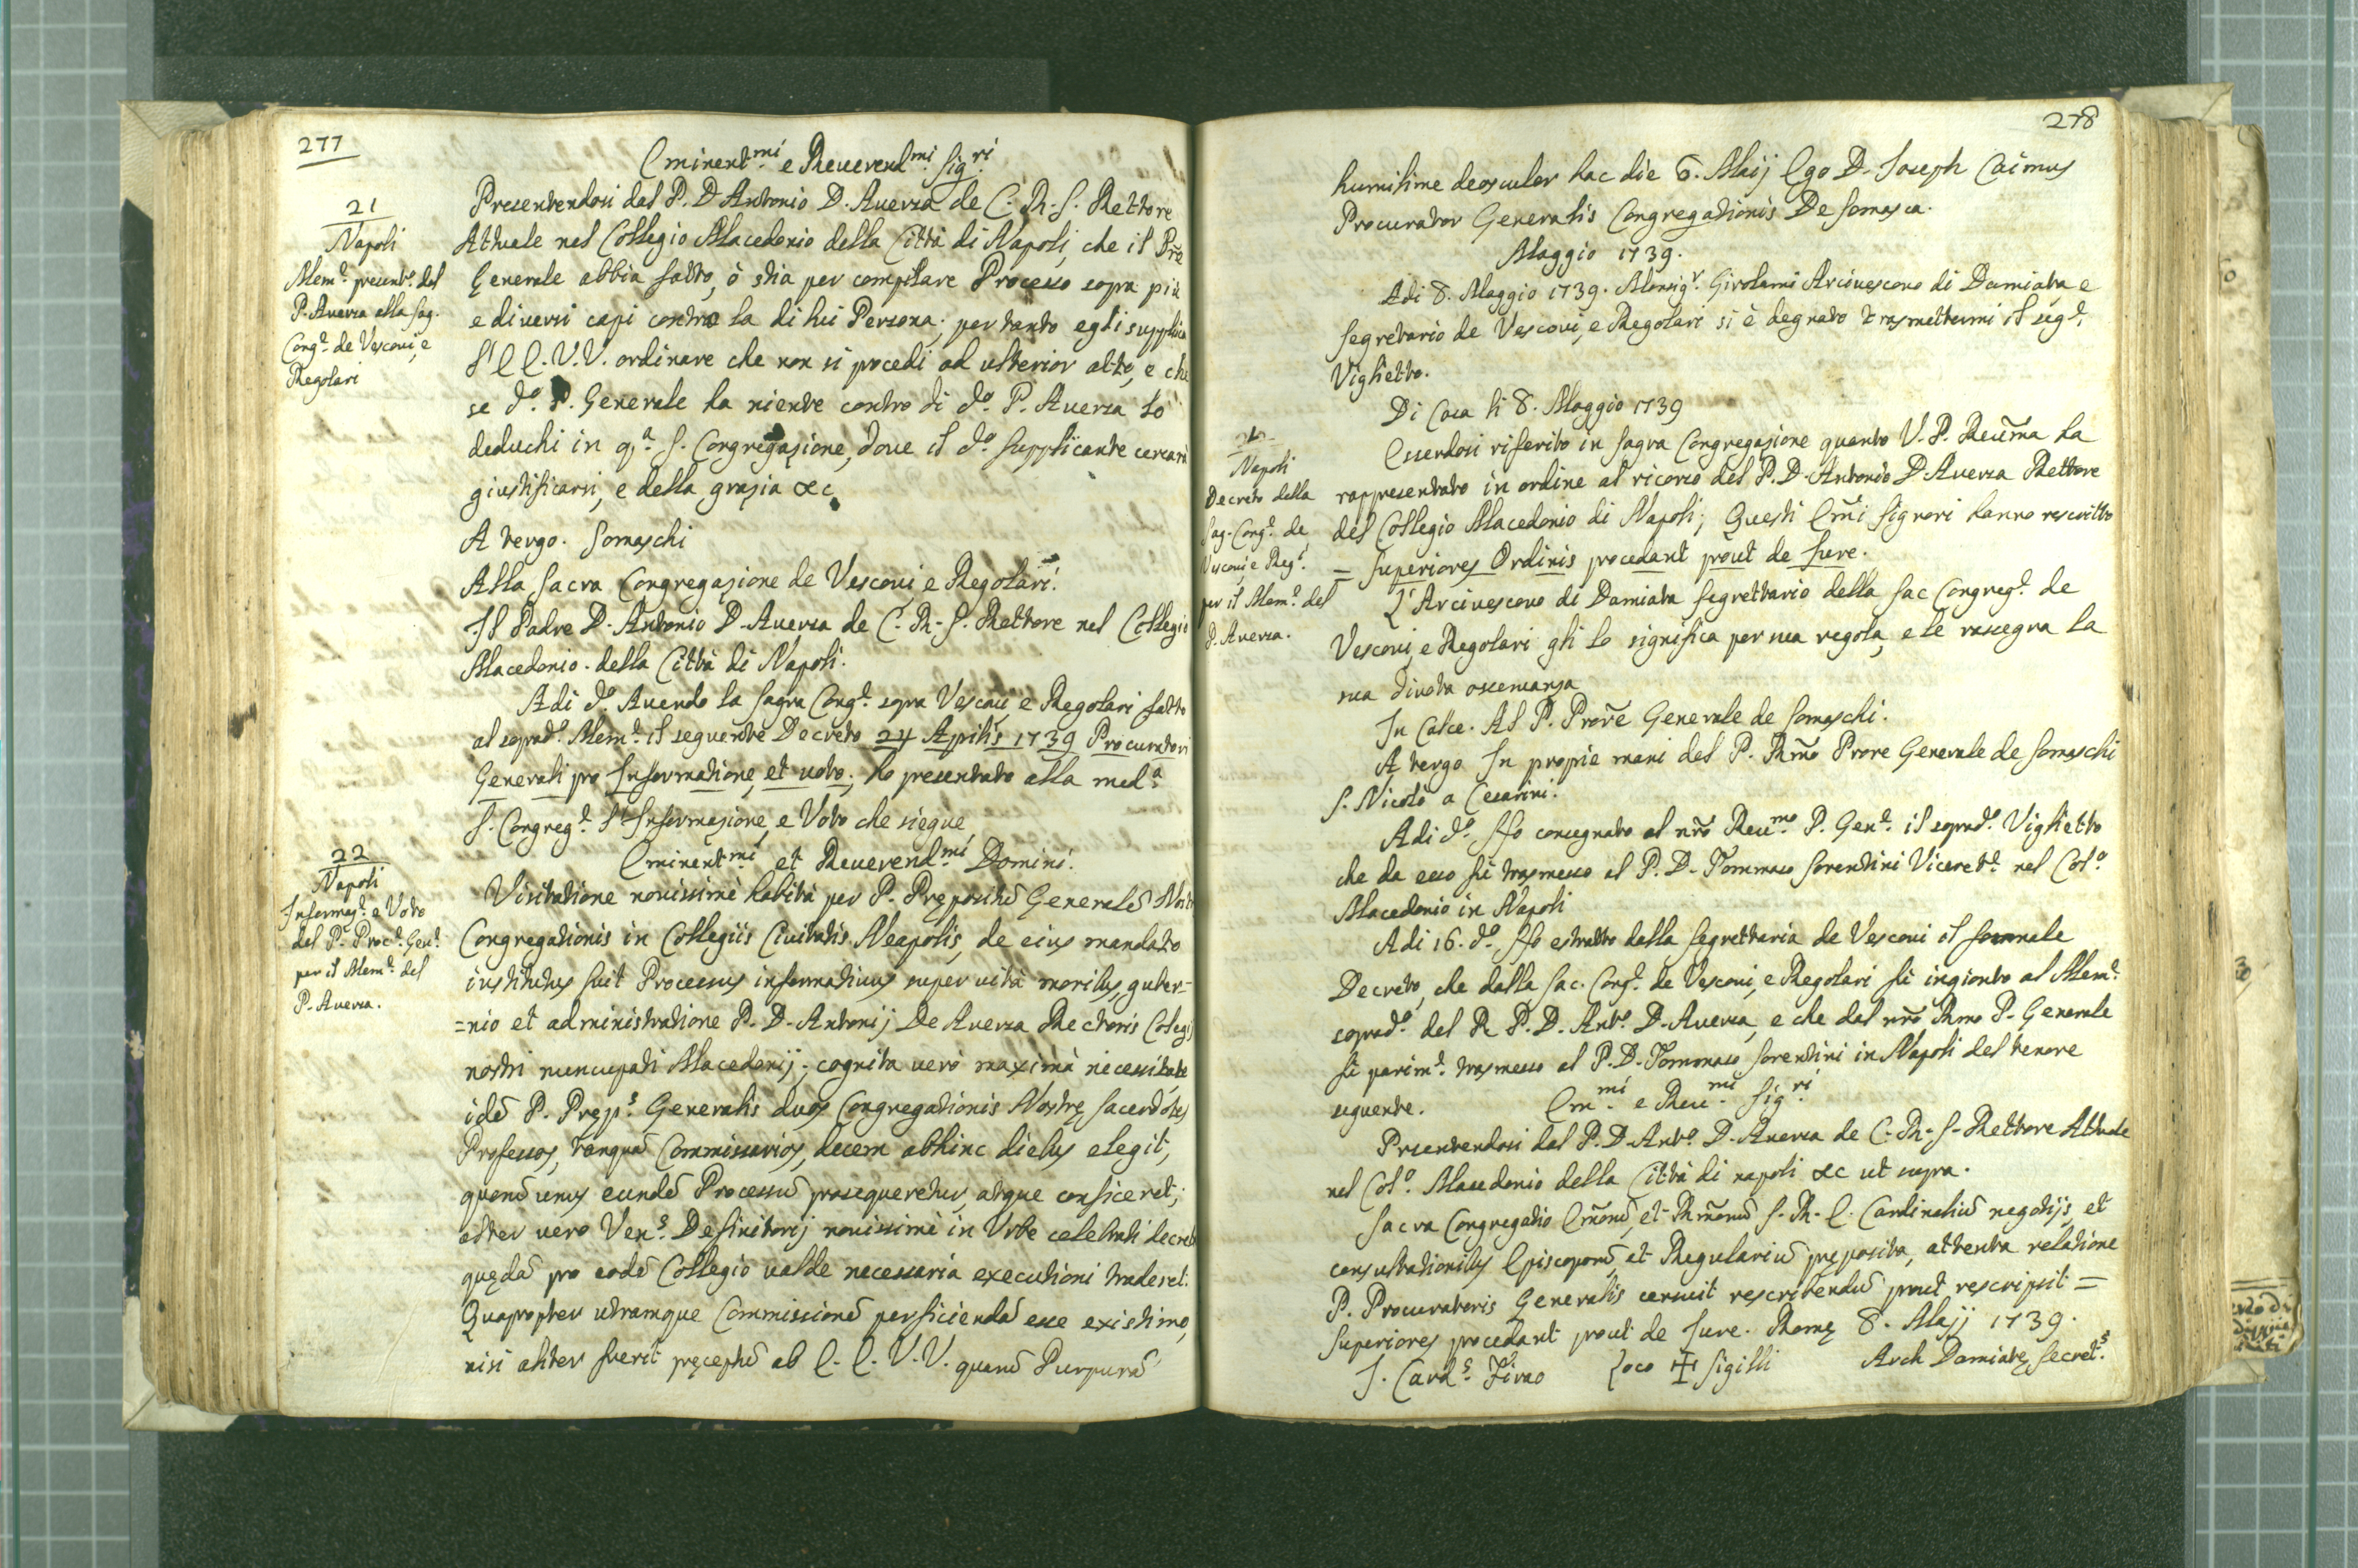 277
Eminent.mi e Reuerend.mi Sig.ri
21
Napoli
Mem.e present.o dal
P. Auersa alla Sag.
Cong.e de Vescoui, e
Regolari
Presentendosi dal P. D. Antonio D. Auersa de C. R. S. Rettore
Attuale nel Collegio Macedonio della Città di Napoli, che il Pre
Generale abbia fatto, ò stia per compilare Processo sopra più
e diuersi capi contro la di lui Persona; pertanto egli supplica
l'E E. V.V. ordinare che non si procedi ad ulterior atto, e che
se d.o P. Generale ha niente contro di d.o P. Auersa lo
deduchi in q.a S. Congregazione, doue il d.o Supplicante cercarà
giustificarsi, e della grazia &c
A tergo. Somaschi
Alla Sacra Congregazione de Vescoui, e Regolari.
Il Padre D. Antonio D. Auersa de C. R. S. Rettore nel Collegio
Macedonio della Città di Napoli.
Adi d.o Auendo la Sagra Cong.e sopra Vescoui, e Regolari fatto
al soprad.o Mem.e il seguente Decreto 24 Aprilis 1739 Procuratori
Generali pro Informatione, et uoto; ho presentato alla med.a
S. Congreg.e l'Informazione, e Voto che siegue
22
Napoli
Informaz.e e Voto
del P. Proc.e Gen.e
per il Mem.e del
P. Auersa.
Eminent.mi et Reuerend.mi Domini.
Visitatione nouissimè habità per P. Prępositū Generalē Nostrę
Congregationis in Collegiis Ciuitatis Neapolis, de eius mandato
institutus fuit Processus informatiuus super uità moribus, guber=
=nio et administratione P. D. Antonij De Auersa Rectoris Collegij
nostri nuncupati Macedonij; cognita uerò maximà necessitate
idē P. Pręp.s Generalis duos Congregationis Nostrę Sacerdotes
Professos, tanquā Commissarios, decem abhinc diebus elegit,
quorū unus eundē Processū prosequeretur, atque conficeret;
alter uero Ven.s Definitorij nouissimè in Vrbe celebrati decreta
quędā pro eodē Collegio ualde necessaria executioni traderet.
Quapropter utramque Commissionē perficiendā esse existimo,
nisi aliter fuerit pręceptū ab E. E. V.V. quarū Purpurā
278
humilime deosculor hac die 6. Maij Ego D. Joseph Caimus
Procurator Generalis Congregationis De Somasca.
Maggio 1739.
Adi 8. Maggio 1739. Monsig.r Girolami Arciuescouo di Damiata e
Segretario de Vescoui, e Regolari si è degnato trasmettermi il seg.e
Viglietto.
Di Casa li 8. Maggio 1739
Napoli
Decreto della
Sag. Cong.e de
Vescoui, e Reg.i
per il Mem.e del
P. Auersa.
Essendosi riferito in Sagra Congregazione quanto V. P. Reūma ha
rappresentato in ordine al ricorso del P. D. Antonio D. Auersa Rettore
del Collegio Macedonio di Napoli; Questi Em̃i Signori hanno rescritto
= Superiores Ordinis procedant prout de Jure.
L'Arciuescouo di Damiata Segrettario della Sac Congreg.e de
Vescoui, e Regolari gli lo significa per sua regola, e le rassegna la
sua diuota osseruanza
In Calce. Al P. Prore Generale de Somaschi.
A tergo In proprie mani del P. Rmo Prore Generale de Somaschi
S. Nicolò a Cesarini.
Adi d.o Ho consegnato al nr̃o Reu.mo P. Gen.e il soprad.o Viglietto
che da esso fù trasmesso al P. D. Tommaso Sorentini Viceret.e nel Col.o
Macedonio in Napoli
Adi 16. d.o Ho estratto dalla Segrettaria de Vescoui il formale
Decreto, che dalla Sac. Cong.e de Vescoui, e Regolari fù ingionto al Mem.e
soprad.o del R P. D. Ant.o D. Auersa, e che dal nr̃o Rmo P. Generale
fù parim.e trasmesso al P. D. Tommaso Sorentini in Napoli del tenore
seguente. Em.mi e Reu.mi Sig.ri
Prsentendosi dal P. D. Ant.o D. Auersa de C. R. S. Rettore Attuale
nel Col.o Macedonio della Città di napoli &c ut supra.
Sacra Congregatio Em̃orū, et Rm̃orū S. R. E. Cardinaliū negotijs, et
consultationibus Episcoporū, et Regulariū pręposita, attenta relatione
P. Procuratoris Generalis censuit rescribendū prout rescripsit =
Superiores procedant prout de Jure. Romę 8. Maij 1739.
J. Card.s Firao Loco ✠ Sigilli Arch Damiatę Secret.s